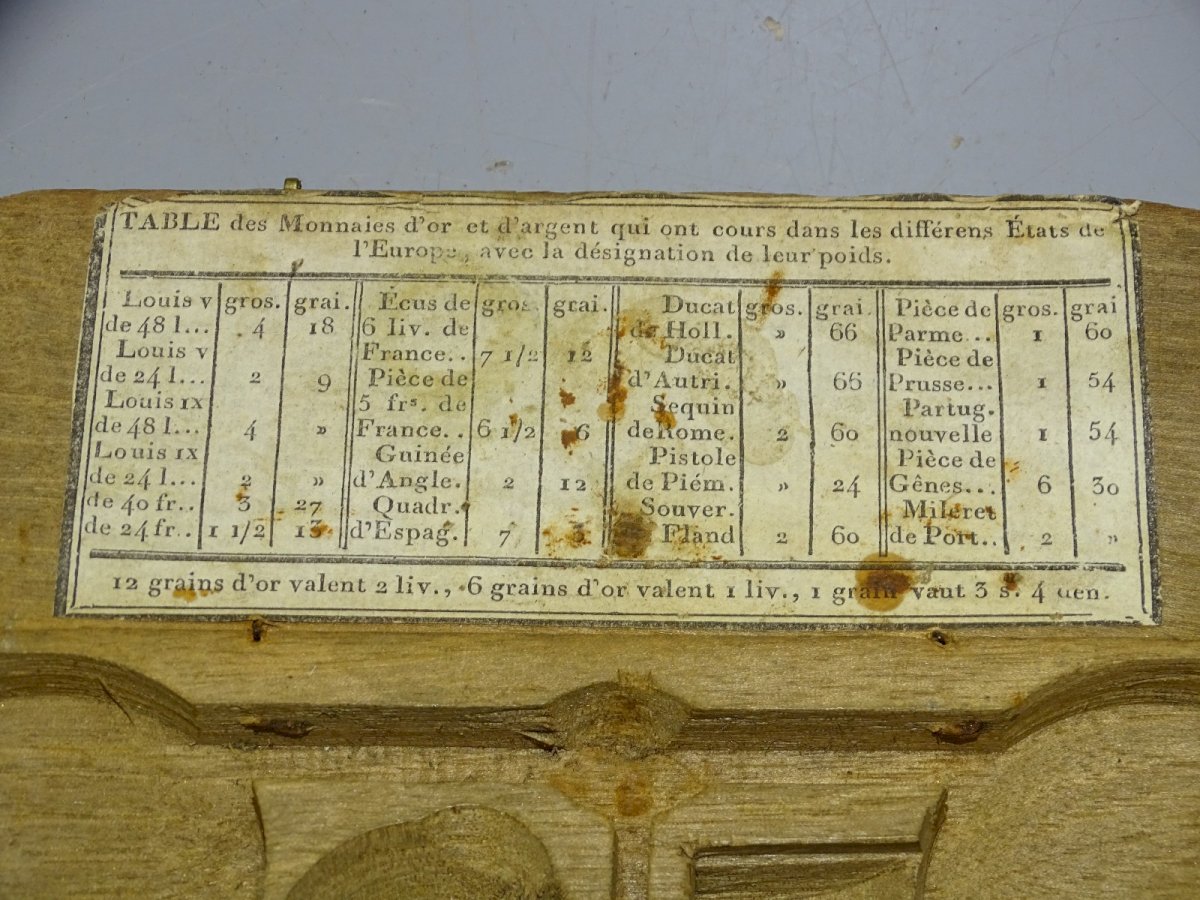 TABLE des Monnaies d'or et d'argent qui ont cours dans les différens États de
l'Europe, avec la désignation de leur poids.
Louis v gros. grai.
de 48 l... 4 18
Louis v
de 24 l... 2 9
Louis ix
de 48 l... 4 »
Louis ix
de 24 l... 2 »
de 40 fr.. 3 27
de 24 fr.. 1 1/2 13
Écus de gros. grai.
6 liv. de
France.. 7 1/2 12
Pièce de
5 frs. de
France.. 6 1/2 6
Guinée
d'Angle. 2 12
Quadr.
d'Espag. 7
Ducat gros. grai.
de Holl. » 66
Ducat
d'Autri. » 66
Sequin
de Rome. 2 60
Pistole
de Piém. » 24
Souver.
Fland 2 60
Pièce de gros. grai
Parme... 1 60
Pièce de
Prusse... 1 54
Partug.
nouvelle 1 54
Pièce de
Gênes... 6 30
Mileret
de Port.. 2 »
12 grains d'or valent 2 liv., 6 grains d'or valent 1 liv., 1 grain vaut 3 s. 4 den.